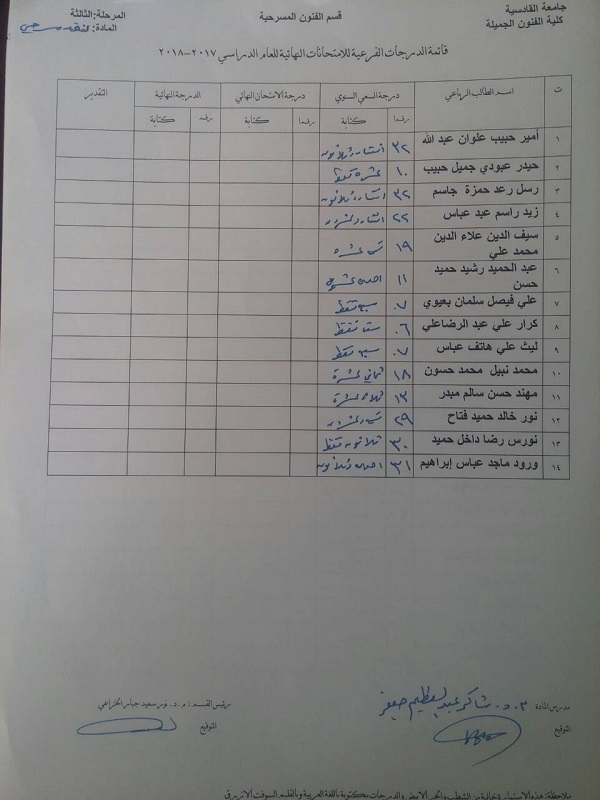 جامعة القادسية
كلية الفنون الجميلة
قسم الفنون المسرحية
المرحلة:الثالثة
المادة: نقد مسرحي
قائمة الدرجات الفرعية للامتحانات النهائية للعام الدراسي ٢٠١٧-٢٠١٨
ت اسم الطالب الرباعي درجة السعي السنوي درجة الامتحان النهائي الدرجة النهائية التقدير
رقما كتابة رقما كتابة رقما كتابة
١ أمير حبيب علوان عبد الله ٣٢ اثنتان وثلاثون
٢ حيدر عبودي جميل حبيب ١٠ عشرة فقط
٣ رسل رعد حمزة جاسم ٣٢ اثنتان وثلاثون
٤ زيد راسم عبد عباس ٢٢ اثنتان وعشرون
٥ سيف الدين علاء الدين محمد علي ١٩ تسع عشرة
٦ عبد الحميد رشيد حميد حسن ١١ احدى عشرة
٧ علي فيصل سلمان بعيوي ٠٧ سبع فقط
٨ كرار علي عبد الرضاعلي ٠٦ ست فقط
٩ ليث علي هاتف عباس ٠٧ سبع فقط
١٠ محمد نبيل محمد حسون ١٨ ثماني عشرة
١١ مهند حسن سالم مبدر ١٣ ثلاث عشرة
١٢ نور خالد حميد فتاح ٢٩ تسع وعشرون
١٣ نورس رضا داخل حميد ٣٠ ثلاثون فقط
١٤ ورود ماجد عباس إبراهيم ٣١ احدى وثلاثون
مدرس المادة م.د. شاكر عبد العظيم جعفر
التوقيع
رئيس القسم: م.د. نور سعيد جبار الخزاعي
التوقيع
ملاحظة: هذه الاستمارة خالية من الشطب والحبر الابيض والدرجات مكتوبة باللغة العربية وبالقلم السوفت الازرق